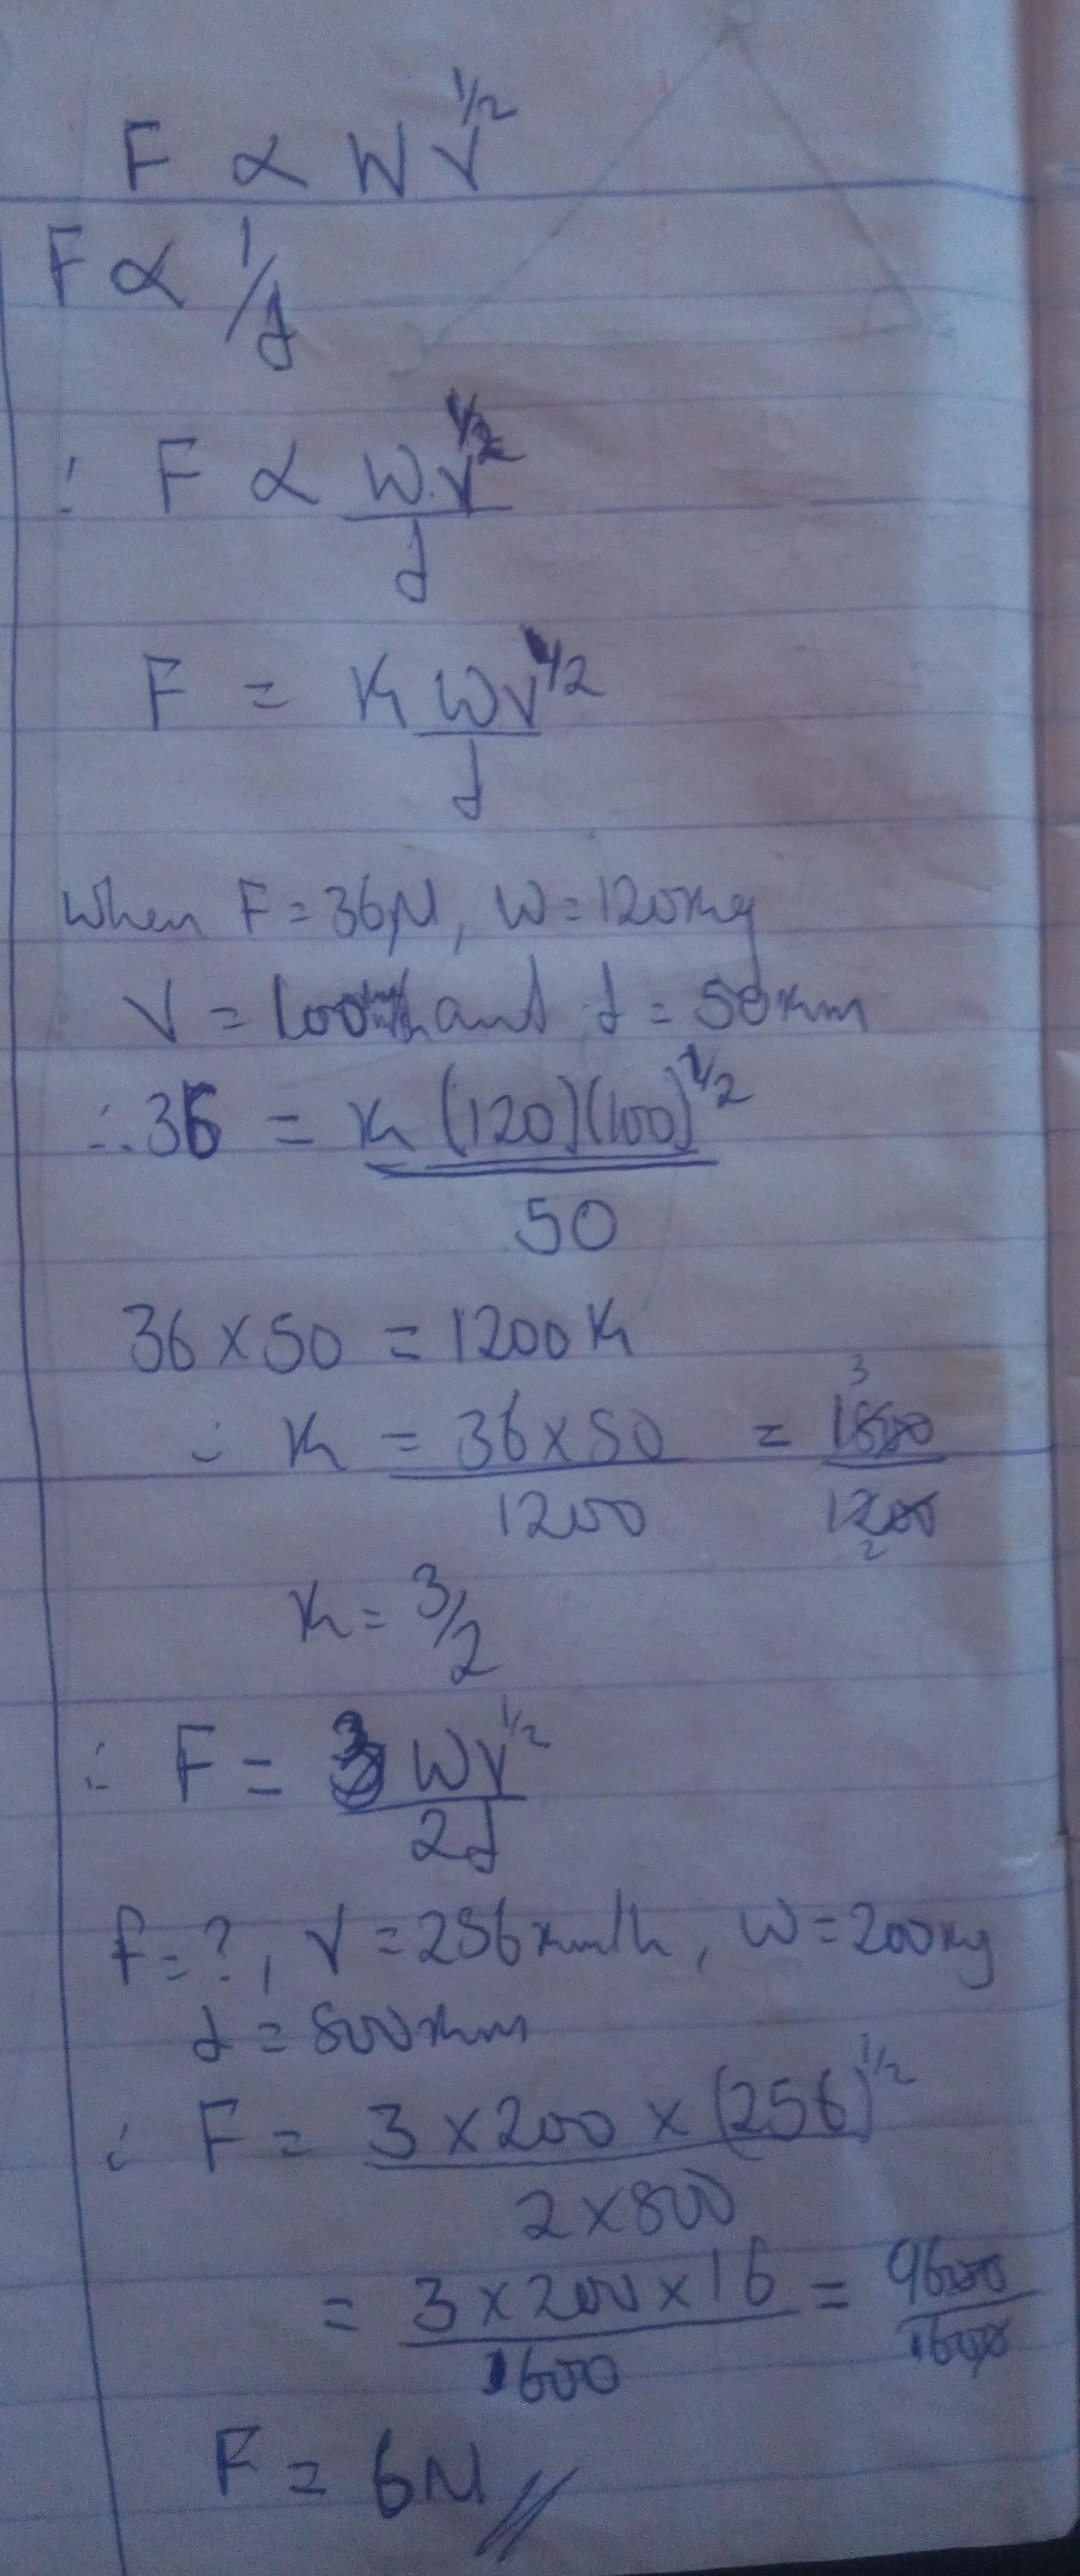 F ∝ WV^1/2
F ∝ 1/d
∴ F ∝ W.V^1/2 / d
F = K WV^1/2 / d
When F = 36N, W = 120kg
V = 100km/h and d = 50km
∴ 36 = K (120)(100)^1/2 / 50
36 × 50 = 1200K
∴ K = 36×50 / 1200 = 1800 3 / 1200 2
K = 3/2
∴ F = 3WV^1/2 / 2d
F = ?, V = 256km/h, W = 200kg
d = 800km
∴ F = 3 × 200 × (256)^1/2 / 2×800
= 3 × 200 × 16 / 1600 = 9600 / 1600
F = 6N //